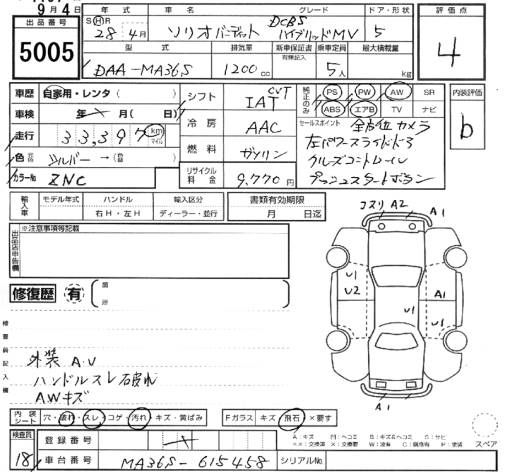 9月4日
出品番号 5005
年式 車名 グレード ドア・形状 評価点
SHR 28年4月 ソリオバンディット DCBS ハイブリッドMV 5 4
型式 排気量 新車保証書 有無記入 乗車定員 最大積載量
DAA-MA36S 1200cc 5人 kg
車歴 自家用・レンタ( ) シフト IAT CVT 純正のみ PS PW AW SR 内装評価
車検 年 月( ) ABS エアB TV ナビ b
走行 33,397 km マイル 冷房 AAC セールスポイント 全方位カメラ
色 シルバー→( ) 燃料 ガソリン 左パワースライドドア
カラーNo ZNC リサイクル料金 9,770円 クルーズコントロール
プッシュスタートボタン
輸入車 モデル年式 ハンドル 輸入区分 書類有効期限
右H・左H ディーラー・並行 月 日迄
出品店申告欄 ※注意事項等記載
コスリ A2 A1
修復歴 有
U1 U2 A1 U1
検査員記入欄
外装 A.U
ハンドルスレ 破れ
AWキズ
A1
内装シート 穴・破れ・スレ・コゲ・汚れ・キズ・黄ばみ Fガラス キズ・飛石・×要す
検査員 18 登録番号
車台番号 MA36S-615458 シリアルNo. スペア